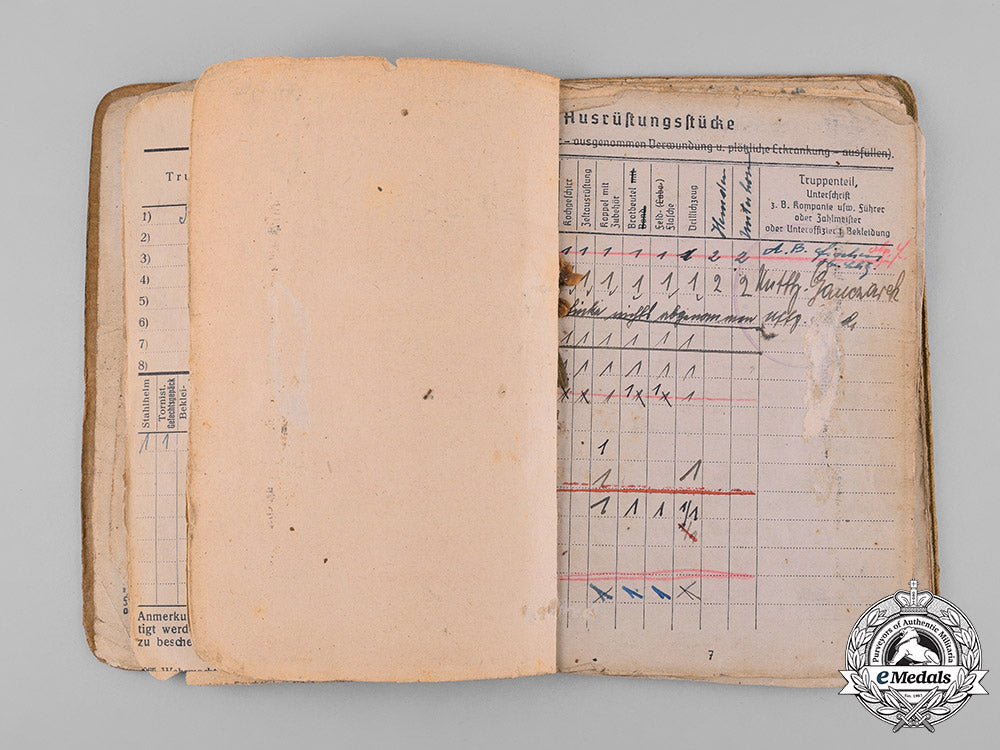 Tru
1)
2)
3)
4)
5)
6)
7)
8)
Stahlhelm
Tornist.
Gefechtsgepäck
Beklei-
1 1
Anmerku
tigt werd
zu besche
Ausrüstungsstücke
– ausgenommen Verwundung u. plötzliche Erkrankung – ausfüllen).
Kochgeschirr
Zeltausrüstung
Koppel mit
Zubehör
Brotbeutel mit
Band
Feld- (Labe-)
Flasche
Drillichzeug
Hemden
Unterhosen
Truppenteil,
Unterschrift
z. B. Kompanie usw. Führer
oder Zahlmeister
oder Unteroffizier f. Bekleidung
1 1 1 1 1 1 2 2 d. B.
1 1 1 1 1 2 2 Uffz. Janczarek
nicht abgenommen Uffz.
1 1 1 1 1 1
1 1 1 1 1 1
x x 1 1x 1x 1
1
1 1
1 1 1 1/1
x 1 1 x
7
Purveyors of Authentic Militaria
eMedals
Est. 1967